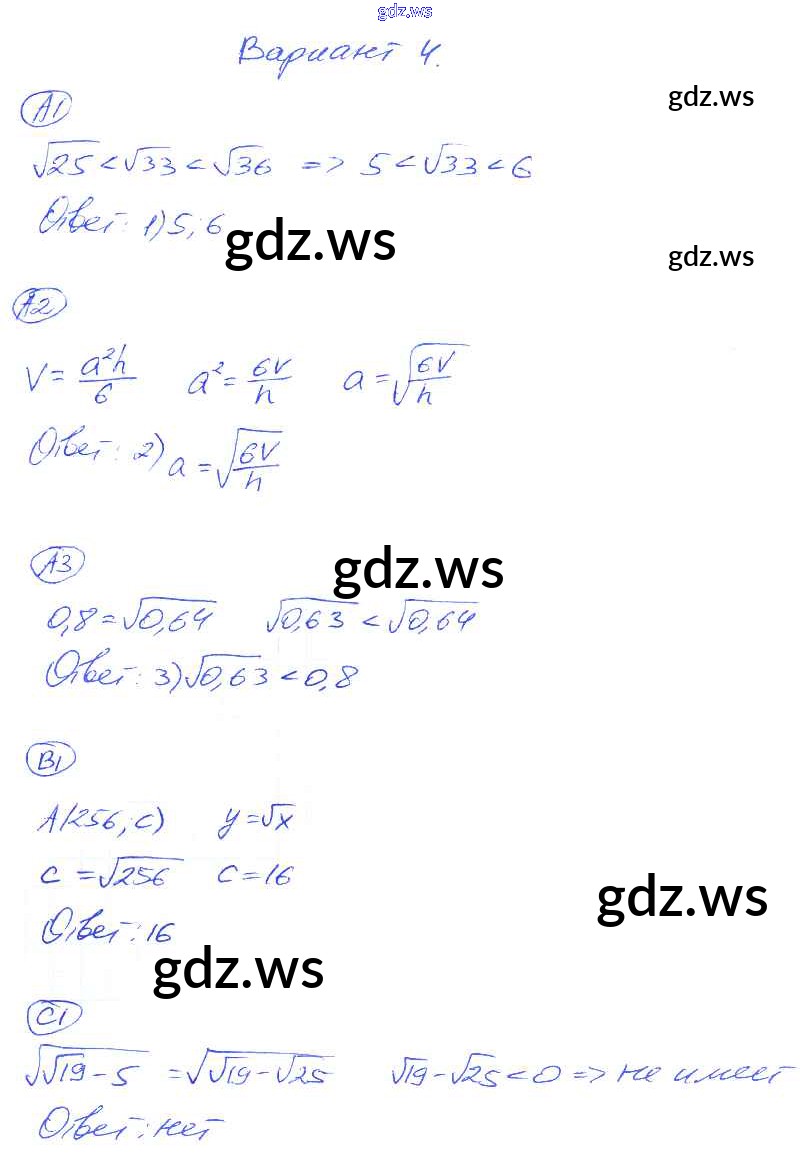 gdz.ws
Вариант 4.
A1
gdz.ws
√25 < √33 < √36 => 5 < √33 < 6
Ответ: 1) 5; 6
gdz.ws
gdz.ws
A2
V = a²h/6 a² = 6V/h a = √(6V/h)
Ответ: 2) a = √(6V/h)
A3
gdz.ws
0,8 = √0,64 √0,63 < √0,64
Ответ: 3) √0,63 < 0,8
B1
A(256; c) y = √x
c = √256 c = 16
gdz.ws
Ответ: 16
gdz.ws
C1
√(√19 - 5) = √(√19 - √25) √19 - √25 < 0 => не имеет
Ответ: нет